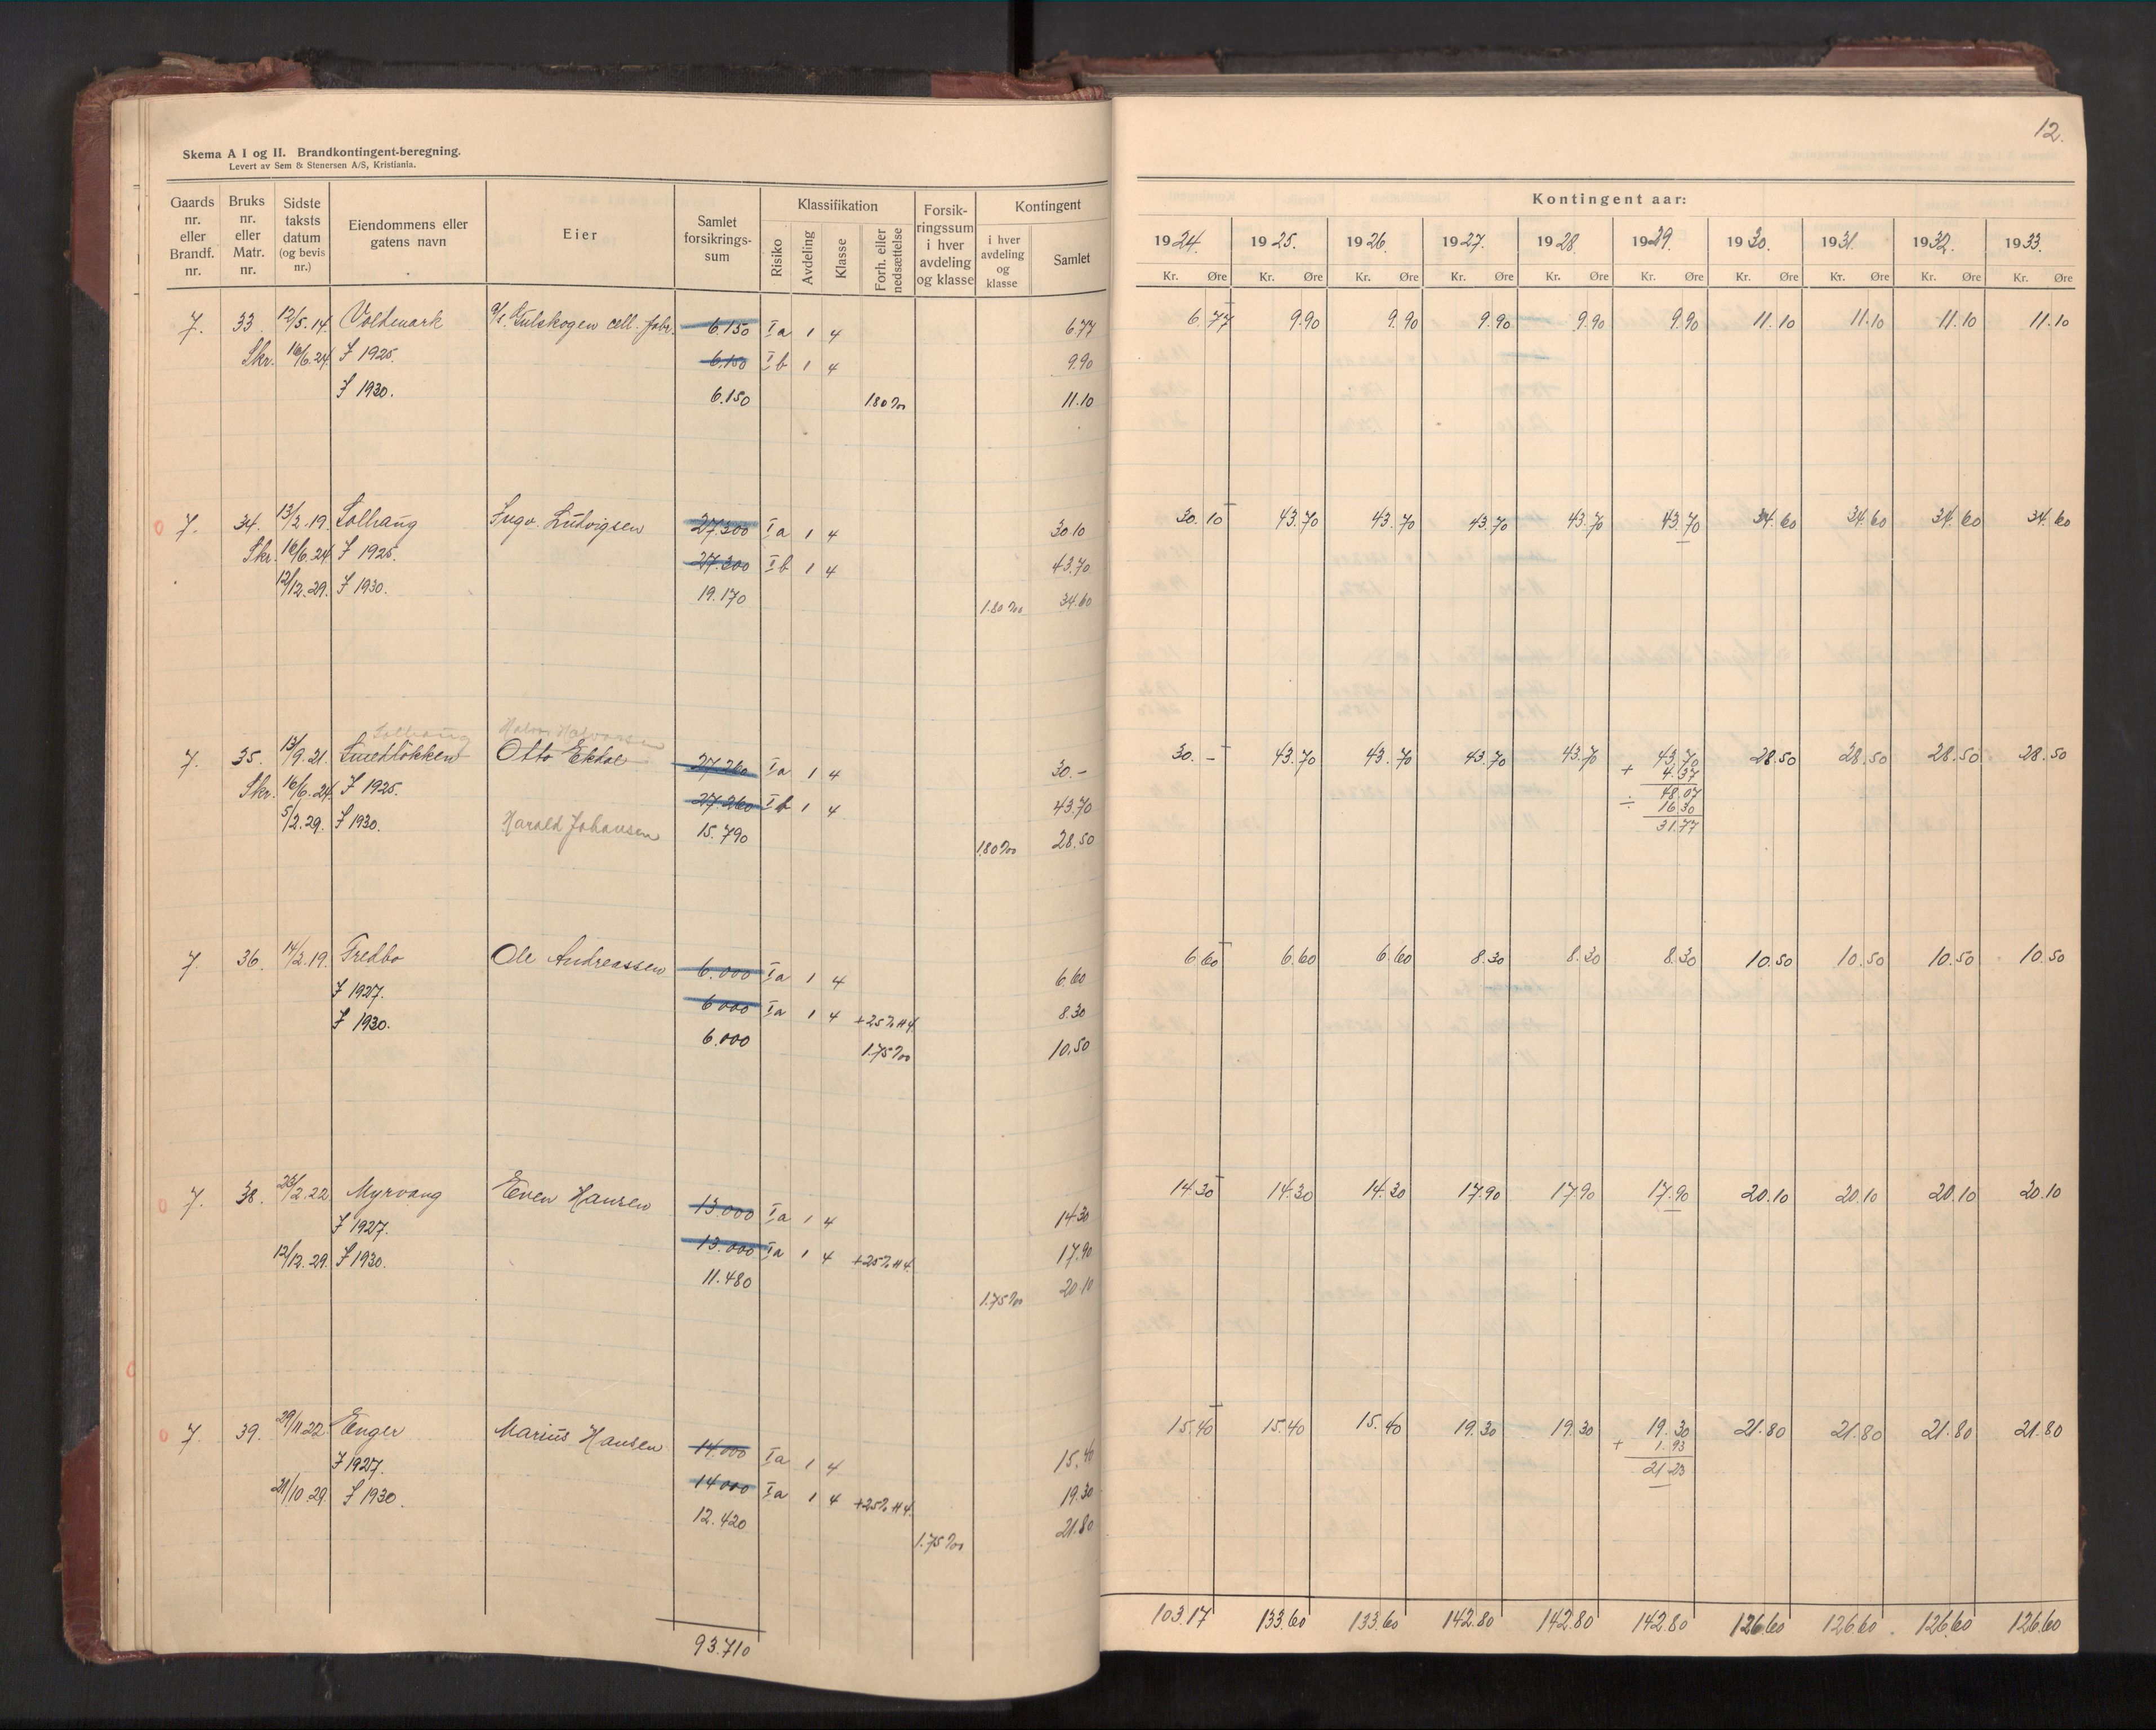 Skema A I og II. Brandkontingent-beregning.
Levert av Sem & Stenersen A/S, Kristiania.
12.
Gaards nr. eller Brandf. nr. | Bruks nr. eller Matr. nr. | Sidste taksts datum (og bevis nr.) | Eiendommens eller gatens navn | Eier | Samlet forsikrings-sum | Klassifikation | Risiko | Avdeling | Klasse | Forh. eller nedsættelse | Forsik-ringssum i hver avdeling og klasse | Kontingent | i hver avdeling og klasse | Samlet
Kontingent aar:
1924. 1925. 1926. 1927. 1928. 1929. 1930. 1931. 1932. 1933.
Kr. Øre Kr. Øre Kr. Øre Kr. Øre Kr. Øre Kr. Øre Kr. Øre Kr. Øre Kr. Øre Kr. Øre
7. 33. 12/5.14. Voldmark A/S. Gulskogen cell. fabr. 6.150 Ia 1 4 6.77 6.77 9.90 9.90 9.90 9.90 9.90 11.10 11.10 11.10 11.10
Skr. 16/6.24. F 1925. 6.150 Ib 1 4 9.90
F 1930. 6.150 1.80‰ 11.10
7. 34. 13/2.19. Solhaug Ingv. Ludvigsen 27.300 Ia 1 4 30.10 30.10 43.70 43.70 43.70 43.70 43.70 34.60 34.60 34.60 34.60
Skr. 16/6.24 F 1925. 27.300 Ib 1 4 43.70
12/12.29. F 1930. 19.170 1.80‰ 34.60
Solhaug Halvor Halvorsen
7. 35. 13/9.21. Smedløkken Otto Ekdal 27.260 Ia 1 4 30.- 30.- 43.70 43.70 43.70 43.70 43.70 28.50 28.50 28.50 28.50
+ 4.37
Skr. 16/6.24. F 1925. 27.260 Ib 1 4 43.70 48.07
÷ 16.30
5/2.29. F 1930. Harald Johansen 15.790 1.80‰ 28.50 31.77
7. 36. 14/2.19. Fredbo Ole Andreassen 6.000 Ia 1 4 6.60 6.60 6.60 6.60 8.30 8.30 8.30 10.50 10.50 10.50 10.50
F 1927. 6.000 Ia 1 4 +25% H4. 8.30
F 1930. 6.000 1.75‰ 10.50
7. 38. 23/2.22 Myrvang Even Hansen 13.000 Ia 1 4 14.30 14.30 14.30 14.30 17.90 17.90 17.90 20.10 20.10 20.10 20.10
F 1927. 13.000 Ia 1 4 +25% H4. 17.90
12/12.29. F 1930. 11.480 1.75‰ 20.10
7. 39. 29/11.22. Enger Marius Hansen 14.000 Ia 1 4 15.40 15.40 15.40 15.40 19.30 19.30 19.30 21.80 21.80 21.80 21.80
+ 1.93
F 1927. 14.000 Ia 1 4 +25% H4. 19.30 21.23
21/10.29. F 1930. 12.420 1.75‰ 21.80
93.710 103.17 133.60 133.60 142.80 142.80 142.80 126.60 126.60 126.60 126.60